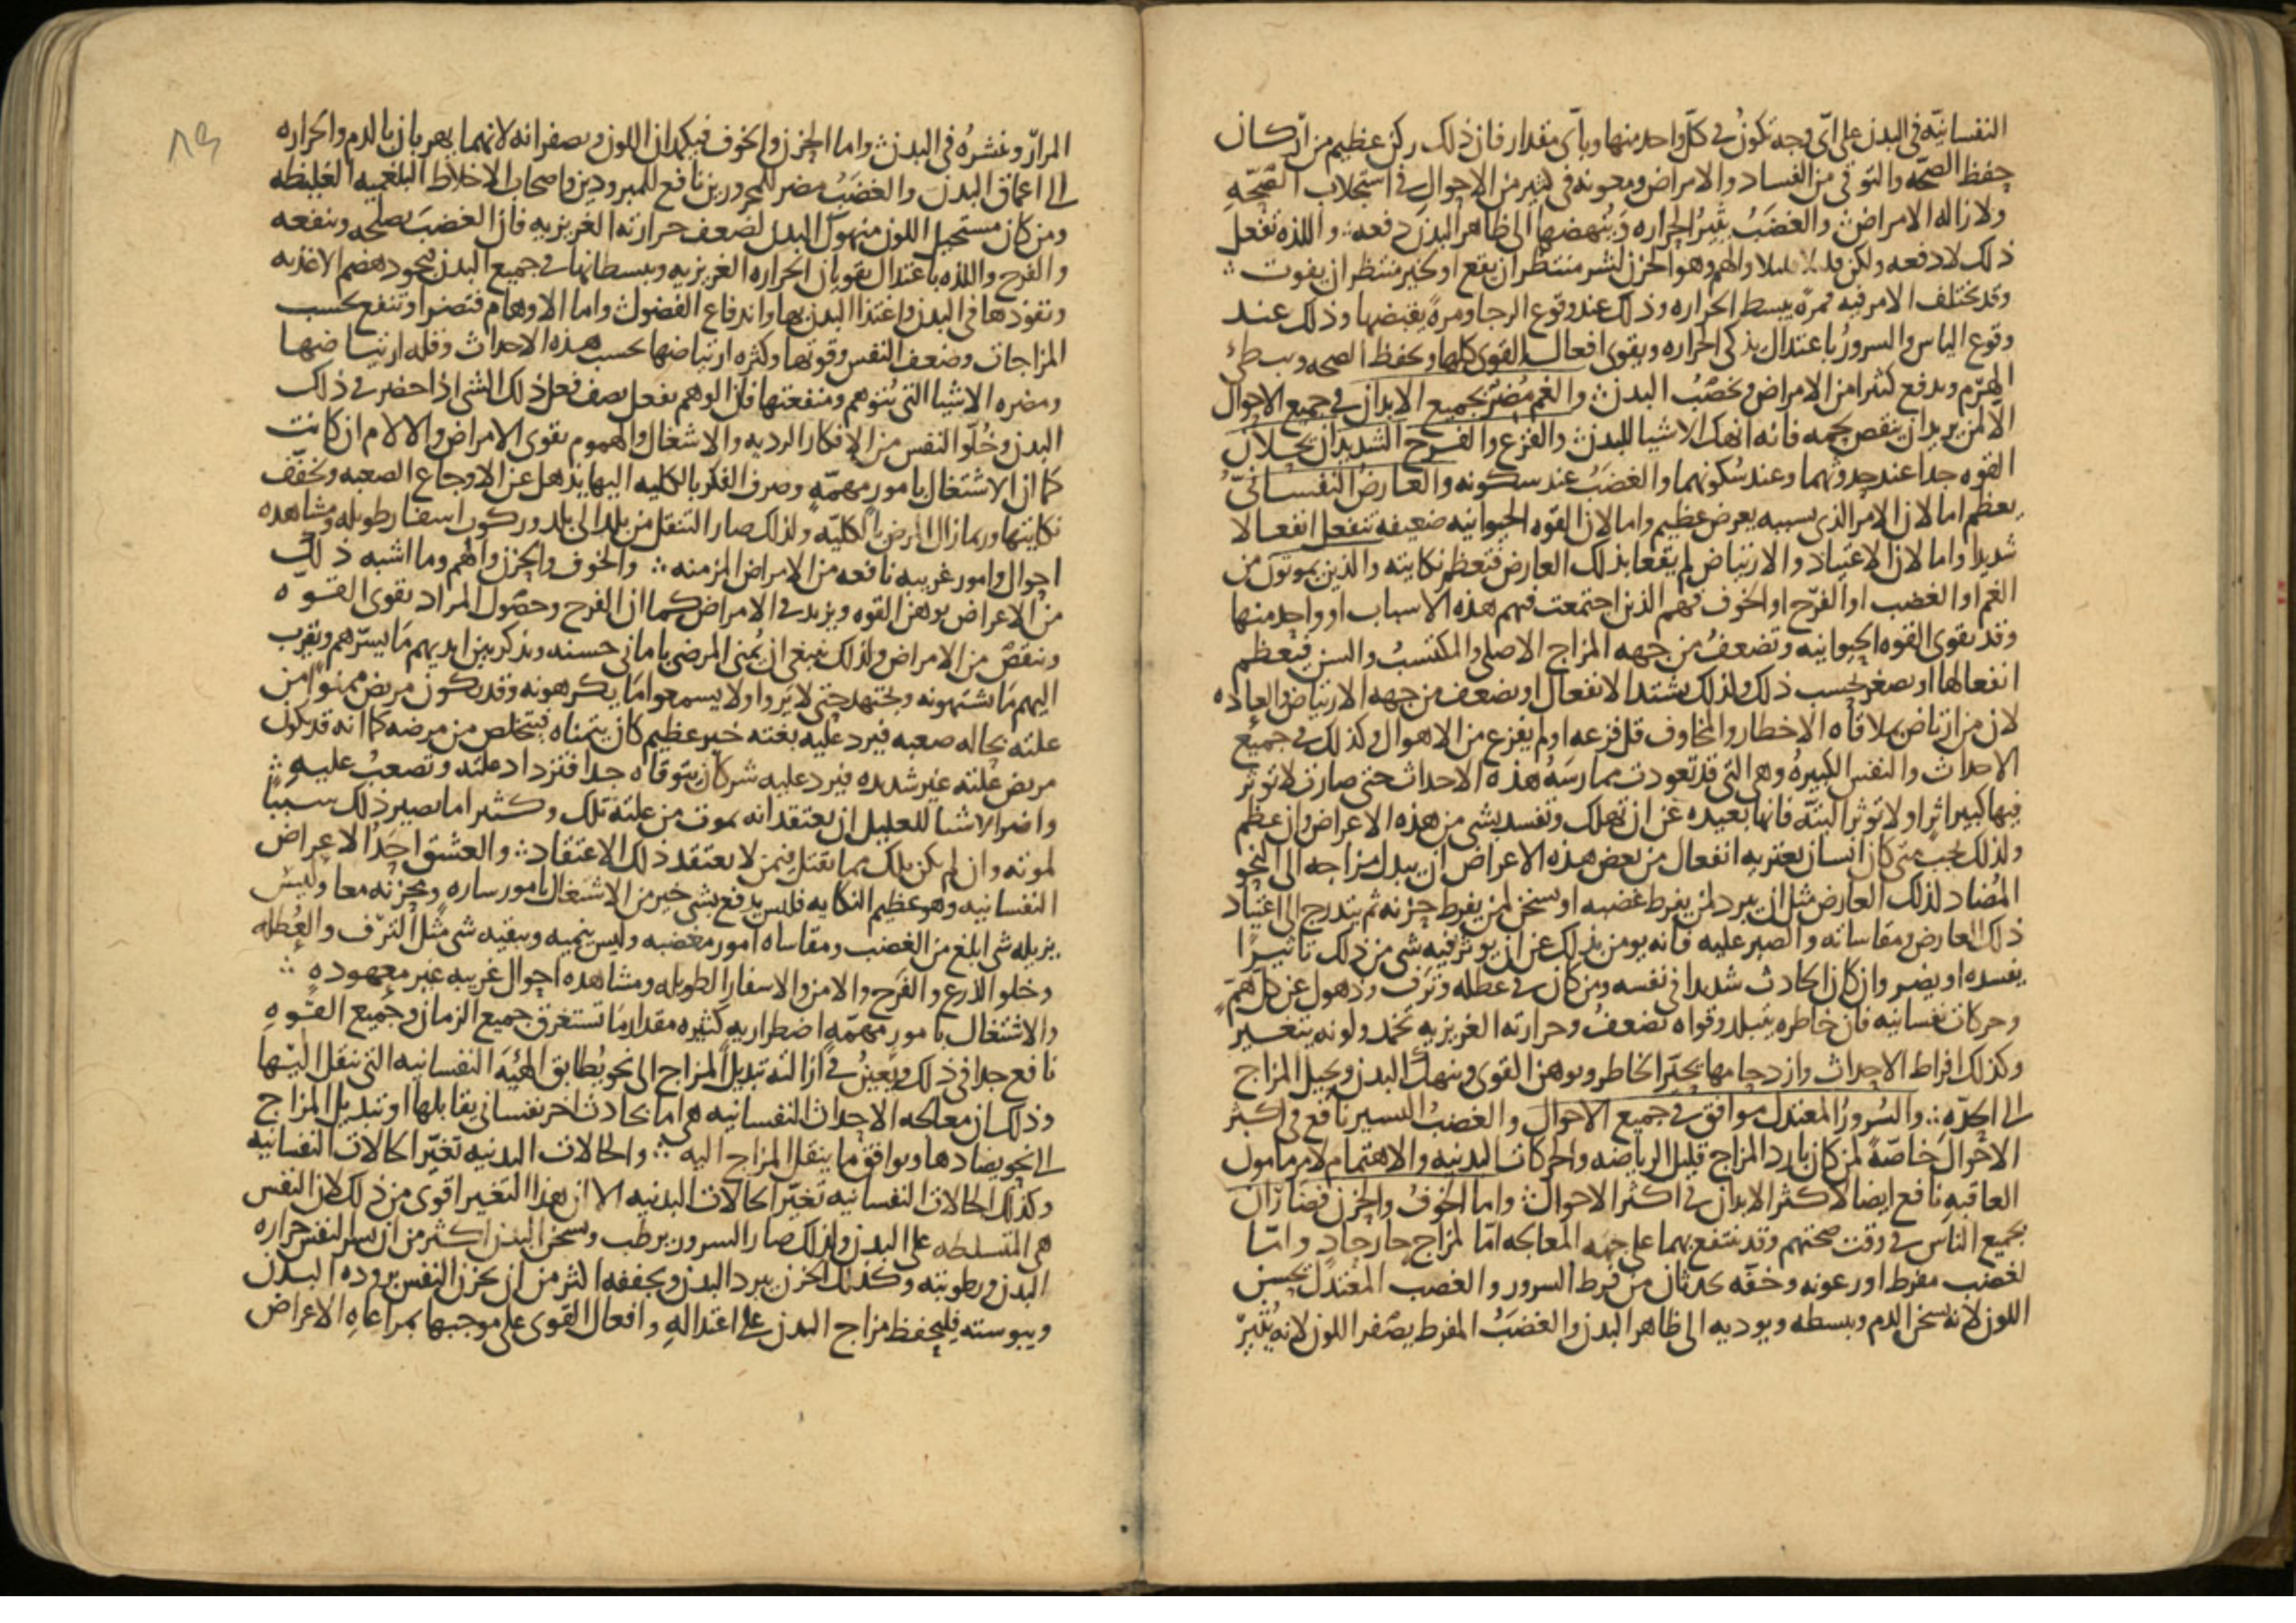 النفسانيّه في البدن على اىّ وجه تكونُ في كلّ واحد منها وبأىّ مقدار فان ذلك ركن عظيم من أركان
حفظ الصحّه والتوقى من الفساد والامراض ومعونه في كثير من الاحوال في استجلاب الصّحّهِ
ولازاله الامراض ∴ والغضَبُ يثيرُ الحراره وَيُنهضها الى ظاهر البدن دفعه ∴ واللذه تفعل
ذلك لا دفعه ولكن قليلا قليلا والهم وهو الحزن لشر منتظر ان يقع او لخير منتظر ان يفوت ∴
وقد يختلف الامر فيه فمرهً يبسط الحراره وذلك عند وقوع الرجا ومرهً يقبضها وذلك عند
وقوع الياس والسرورُ باعتدال يذكى الحراره ويقوى افعال القوى كلها ويحفظ الصحه ويبطئ
الهرَم ويدفع كثيرا من الامراض ويخصّبُ البدن ∴ والغم مُضرّ بجميع الابدان في جميع الاحوال
الا لمن يريد ان ينقص لحمه فانه انهك الاشيا للبدن ∴ والفزع والفرح الشديدان يحلّلان
القوه جدا عند حدوثهما وعند سُكونهما والغضبَ عند سكونه والعارضُ النفسانىُّ
يعظم اما لان الامر الذى بسببه يعرض عظيم واما لان القوه الحيوانيه ضعيفه تنفعل انفعالا
شديدا واما لان الاعتياد والارتياض لم يقعا بذلك العارض فتعظم نكايته والذين يموتون من
الغم او الغضب او الفرَح او الخوف فهم الذين اجتمعت فيهم هذه الاسباب او واحد منها
وقد تقوى القوه الحيوانيه وتضعفُ من جهه المزاج الاصلى والمكتسبُ والسن فيعظم
انفعالها او يصغر بحسب ذلك ولذلك يشتد الانفعال او يضعف من جهه الارتياض والعاده
لان من ارتاض بملاقاه الاخطار والمخاوف قل فزعه او لم يفزع من الاهوال وكذلك في جميع
الاحداث والنفس الكبيرهُ وهى التى قد تعودت ممارسَهُ هذه الاحداث حتى صارت لا توثر
فيها كبير اثر او لا توثر البتّه فانها بعيده عن ان تهلك وتفسد بشى من هذه الاعراض وان عظم
ولذلك يجب متى كان انسان يعتريه انفعال من بعض هذه الاعراض ان يبدل مزاجه الى النحو
المُضاد لذلك العارض مثل ان يبرد لمن يفرط غضبه او يسخن لمن يفرط حزنه ثم يتدرج الى اعتياد
ذلك العارض ومقاساته والصبر عليه فانه يومن بذلك عن ان يوثر فيه شى من ذلك تاثيرًا
يفسده او يضر وان كان الحادث شديدا في نفسه ومن كان في عطله وترَف وذهول عن كل همّ
وحركات نفسانيه فان خاطره يتبلد وقواه تضعفُ وحرارته الغريزيه تخمد ولونه يتغير
وكذلك افراط الاحداث وازدحامها يحيّر الخاطر ويوهن القوى وينهك البدن ويحيل المزاج
الى الحدّه ∴ والسُرورُ المعتدل موافق في جميع الاحوال والغضبُ اليسير نافع في اكثر
الاحْوال خاصّهً لمن كان بارد المزاج قليل الرياضه والحركات البدنيه والاهتمام لامر مامول
العاقبهِ نافع ايضا لاكثر الابدان في اكثر الاحوال ∴ واما الخوفُ والحزن فضاران
بجميع الناس في وقت صحتهم وقد ينتفع بهما على جهه المعالجه امّا لمزاج حار حادٍ وامّا
لغضب مفرط او رعونه وخفّه يحدثان من فرط السرور والغضب المعتدل يحسن
اللون لانه يسخن الدم ويبسطه ويوديه الى ظاهر البدن والغضَبُ المفرط يصّفر اللون لانه يُثيرُ
٨٣
المرارَ وينشرُه في البدن ∴ واما الحزن والخوف فيكمدان اللون ويصفرانه لانهما يهربان بالدم والحراره
الى اعماق البدن والغضَبُ مضر للمحرورين نافع للمبرودين واصحاب الاخلاط البلغميه الغليظه
ومن كان مستحيل اللون منهوك البدن لضعف حرارته الغريزيه فان الغضبَ يصلحه وينفعه
والفرح واللذه باعتدال يقويان الحراره الغريزيه ويبسطانها في جميع البدن فيجود هضم الاغذيه
ونفوذها في البدن واغتذا البدن بها واندفاع الفضول ∴ واما الاوهام فتضر او تنفع بحسب
المزاجات وضعف النفس وقوتها وكثره ارتياضها بحسب هذه الاحداث وقله ارتياضها
ومضره الاشيا التى تُتوهم ومنفعتها فان الوهم يفعل نصف فعل ذلك الشى اذا حضر في ذلك
البدن وخُلّو النفس من الافكار الرديه والاشغال والهموم يقوى الامراض والالام ان كانت
كما ان الاشتغال بامورٍ مهمّهٍ وصرف الفكر بالكليه اليها يذهل عن الاوجاع الصعبه ويخفّف
نكايتها وربما زال المرض بالكليّه ولذلك صار التنقل من بلد الى بلد وركوب اسفار طويله ومشاهده
احوال وامور غريبه نافعه من الامراض المزمنه ∴ والخوف والحزن والهم وما اشبه ذلك
من الاعراض يوهن القوه ويزيد في الامراض كما ان الفرح وحصول المراد يقوى القوّه
وينقصُ من الامراض ولذلك ينبغى ان يُمنى المرضى بامانى حسنه ويذكر بين ايديهم مَا يسرّهم ويقرب
اليهم مَا يشتهونه ويجتهد حتى لا يَروا ولا يسمعوا مَا يكرهونه وقد يكون مريض ممنوًا من
علته بحاله صعبه فيرد عليه بغته خبر عظيم كان يتمناه فيتخلص من مرضه كما انه قد يكون
مريض علته غير شديده فيرد عليه شر كان يتوقاه جدا فتزداد علته وتصعبُ عليهِ ∴
واضر الاشيا للعليل ان يعتقد انه يموت من علته تلك وكثيرا ما يصير ذلك سببًا
لموته وان لم يكن تلك مما يقتل فيمن لا يعتقد ذلك الاعتقاد ∴ والعشق احَدُ الاعراض
النفسانيه وهو عظيم النكايه فليس يدفع بشى خير من الاشتغال بامور ساره ومحزنه معا وليس
يزيله شى ابلغ من الغضب ومقاساه امور مغضبه وليس ينميه ويبقيه شى مثل الترّف والعُطله
وخلو الذرع والفَرح والامن والاسفار الطويله ومشاهده احوال غريبه غير معهودهٍ ∴
والاشتغال بامورٍ مهمّهٍ اضطراريهٍ كثيره مقدار مَا تستغرق جميع الزمان وجميع القوّهِ
نافع جدا في ذلك ويعينُ في ازالته تبديل المزاج الى نحو يُطابق الهيئه النفسانيه التى ننقل اليها
وذلك ان معالجه الاحداث النفسانيه هى اما بحادث اخر نفسانى يقابلها او تبديل المزاج
الى نحو يضادها ويوافق ما ينقل المزاج اليه ∴ والحالات البدنيه تغيّر الحالات النفسانيه
وكذلك الحالات النفسانيه تغيّر الحالات البدنيه الا ان هذا التغير اقوى من ذلك لان النفس
هى المتسلطه على البدن ولذلك صار السرور يرطب ويسخن البدن اكثر من ان يسر النفس حراره
البدن ورطوبته وكذلك الحزن يبرد البدن ويجففه اكثر من ان يحزن النفس بروده البدن
ويبوسته فليحفظ مزاج البدن على اعتدالهِ وافعال القوى على موجبها بمراعاهِ الاعراض